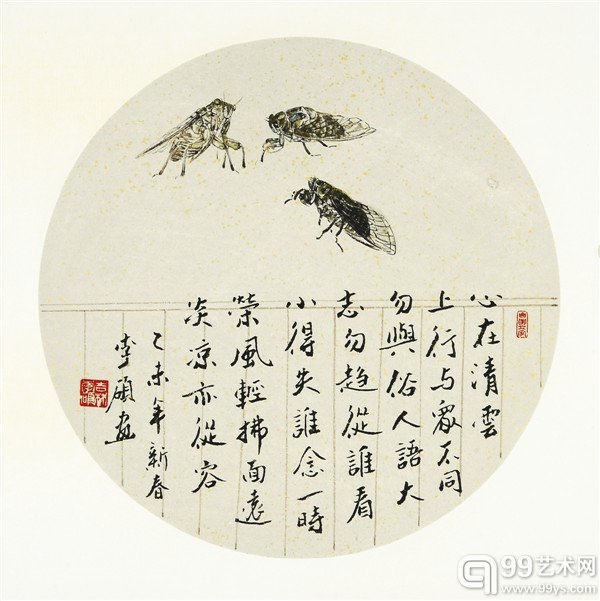 心在清雲
上行与眾不同
勿與俗人語大
志勿趨從誰看
小得失誰念一時
榮風輕拂面遠
炎凉亦從容
乙未年新春
李碩畫
99艺术网
www.99ys.com